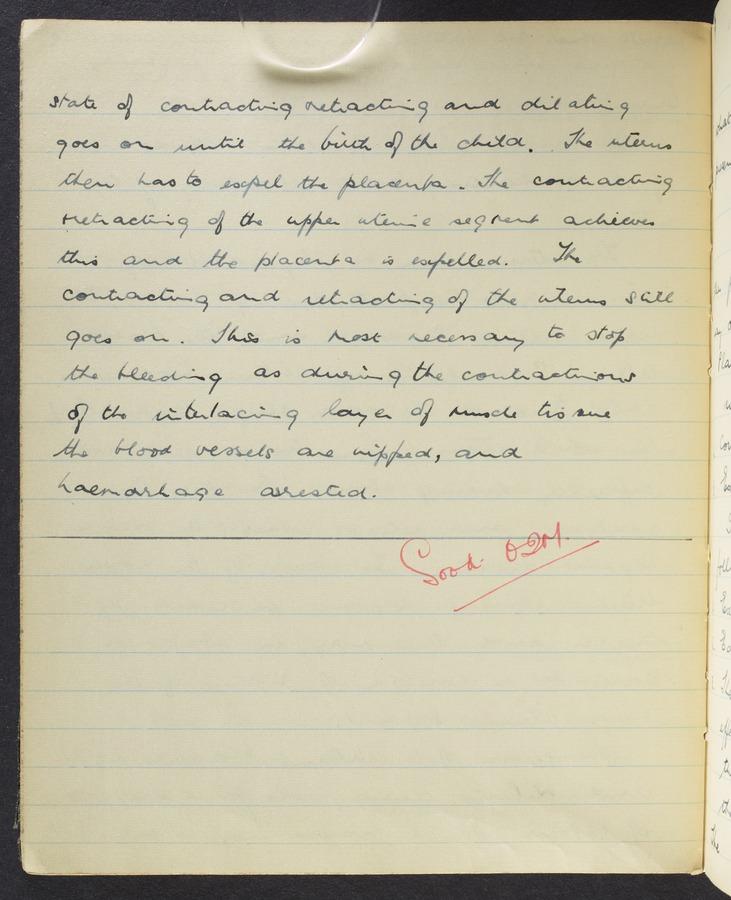 state of contracting retracting and dilating
goes on until the birth of the child. The uterus
then has to expel the placenta. The contracting
retracting of the upper uterine segment achieves
this and the placenta is expelled. The
contracting and retracting of the uterus still
goes on. This is most necessary to stop
the bleeding as during the contractions
of the interlacing layer of muscle tissue
the blood vessels are nipped, and
haemorrhage arrested.
Good